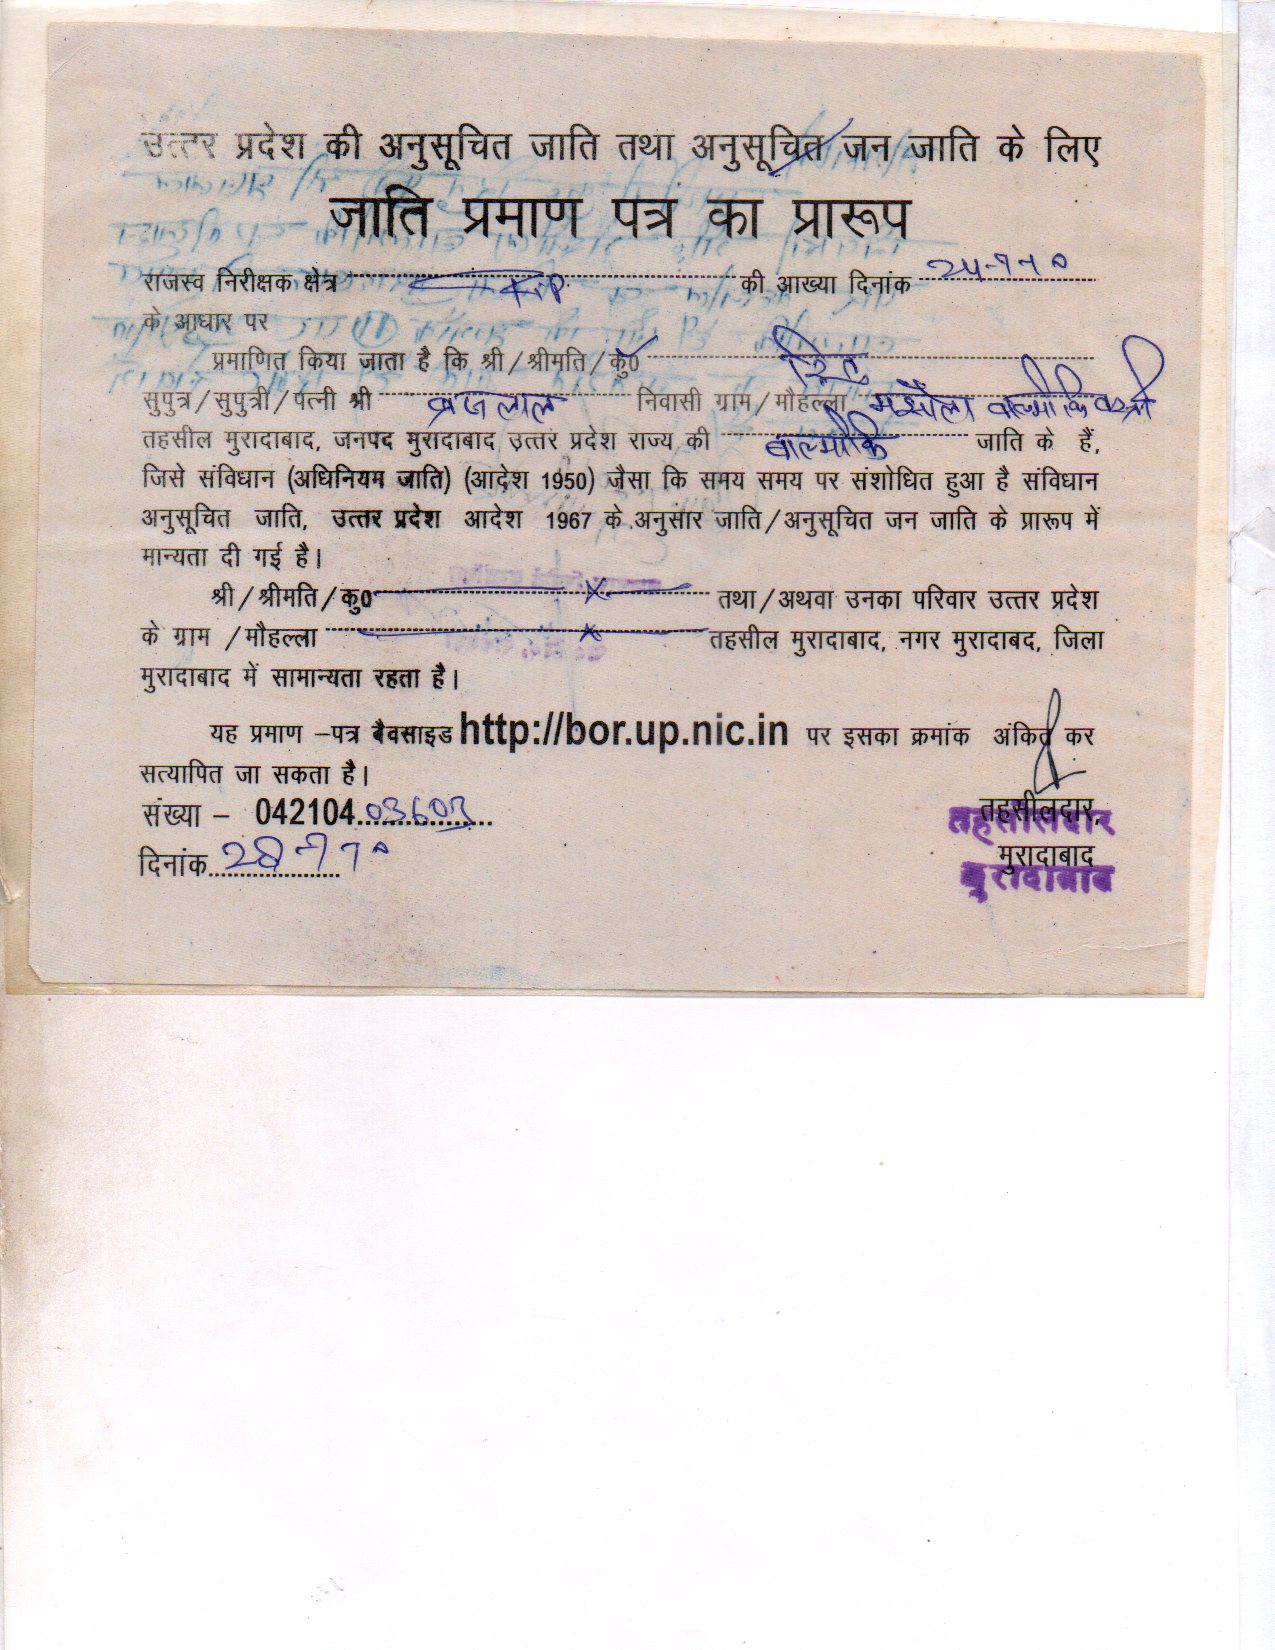 उत्तर प्रदेश की अनुसूचित जाति तथा अनुसूचित जन जाति के लिए
जाति प्रमाण पत्र का प्रारूप
राजस्व निरीक्षक क्षेत्र की आख्या दिनांक
के आधार पर
प्रमाणित किया जाता है कि श्री/श्रीमति/कु0
सुपुत्र/सुपुत्री/पत्नी श्री ब्रजलाल निवासी ग्राम/मौहल्ला वाल्मीकि बस्ती
तहसील मुरादाबाद, जनपद मुरादाबाद उत्तर प्रदेश राज्य की बाल्मीकि जाति के हैं,
जिसे संविधान (अधिनियम जाति) (आदेश 1950) जैसा कि समय समय पर संशोधित हुआ है संविधान
अनुसूचित जाति, उत्तर प्रदेश आदेश 1967 के अनुसार जाति/अनुसूचित जन जाति के प्रारूप में
मान्यता दी गई है।
श्री/श्रीमति/कु0 तथा/अथवा उनका परिवार उत्तर प्रदेश
के ग्राम /मौहल्ला तहसील मुरादाबाद, नगर मुरादाबद, जिला
मुरादाबाद में सामान्यता रहता है।
यह प्रमाण –पत्र बैवसाइड http://bor.up.nic.in पर इसका क्रमांक अंकित कर
सत्यापित जा सकता है।
संख्या – 042104 03603
तहसीलदार,
दिनांक
मुरादाबाद
तहसीलदार
मुरादाबाद